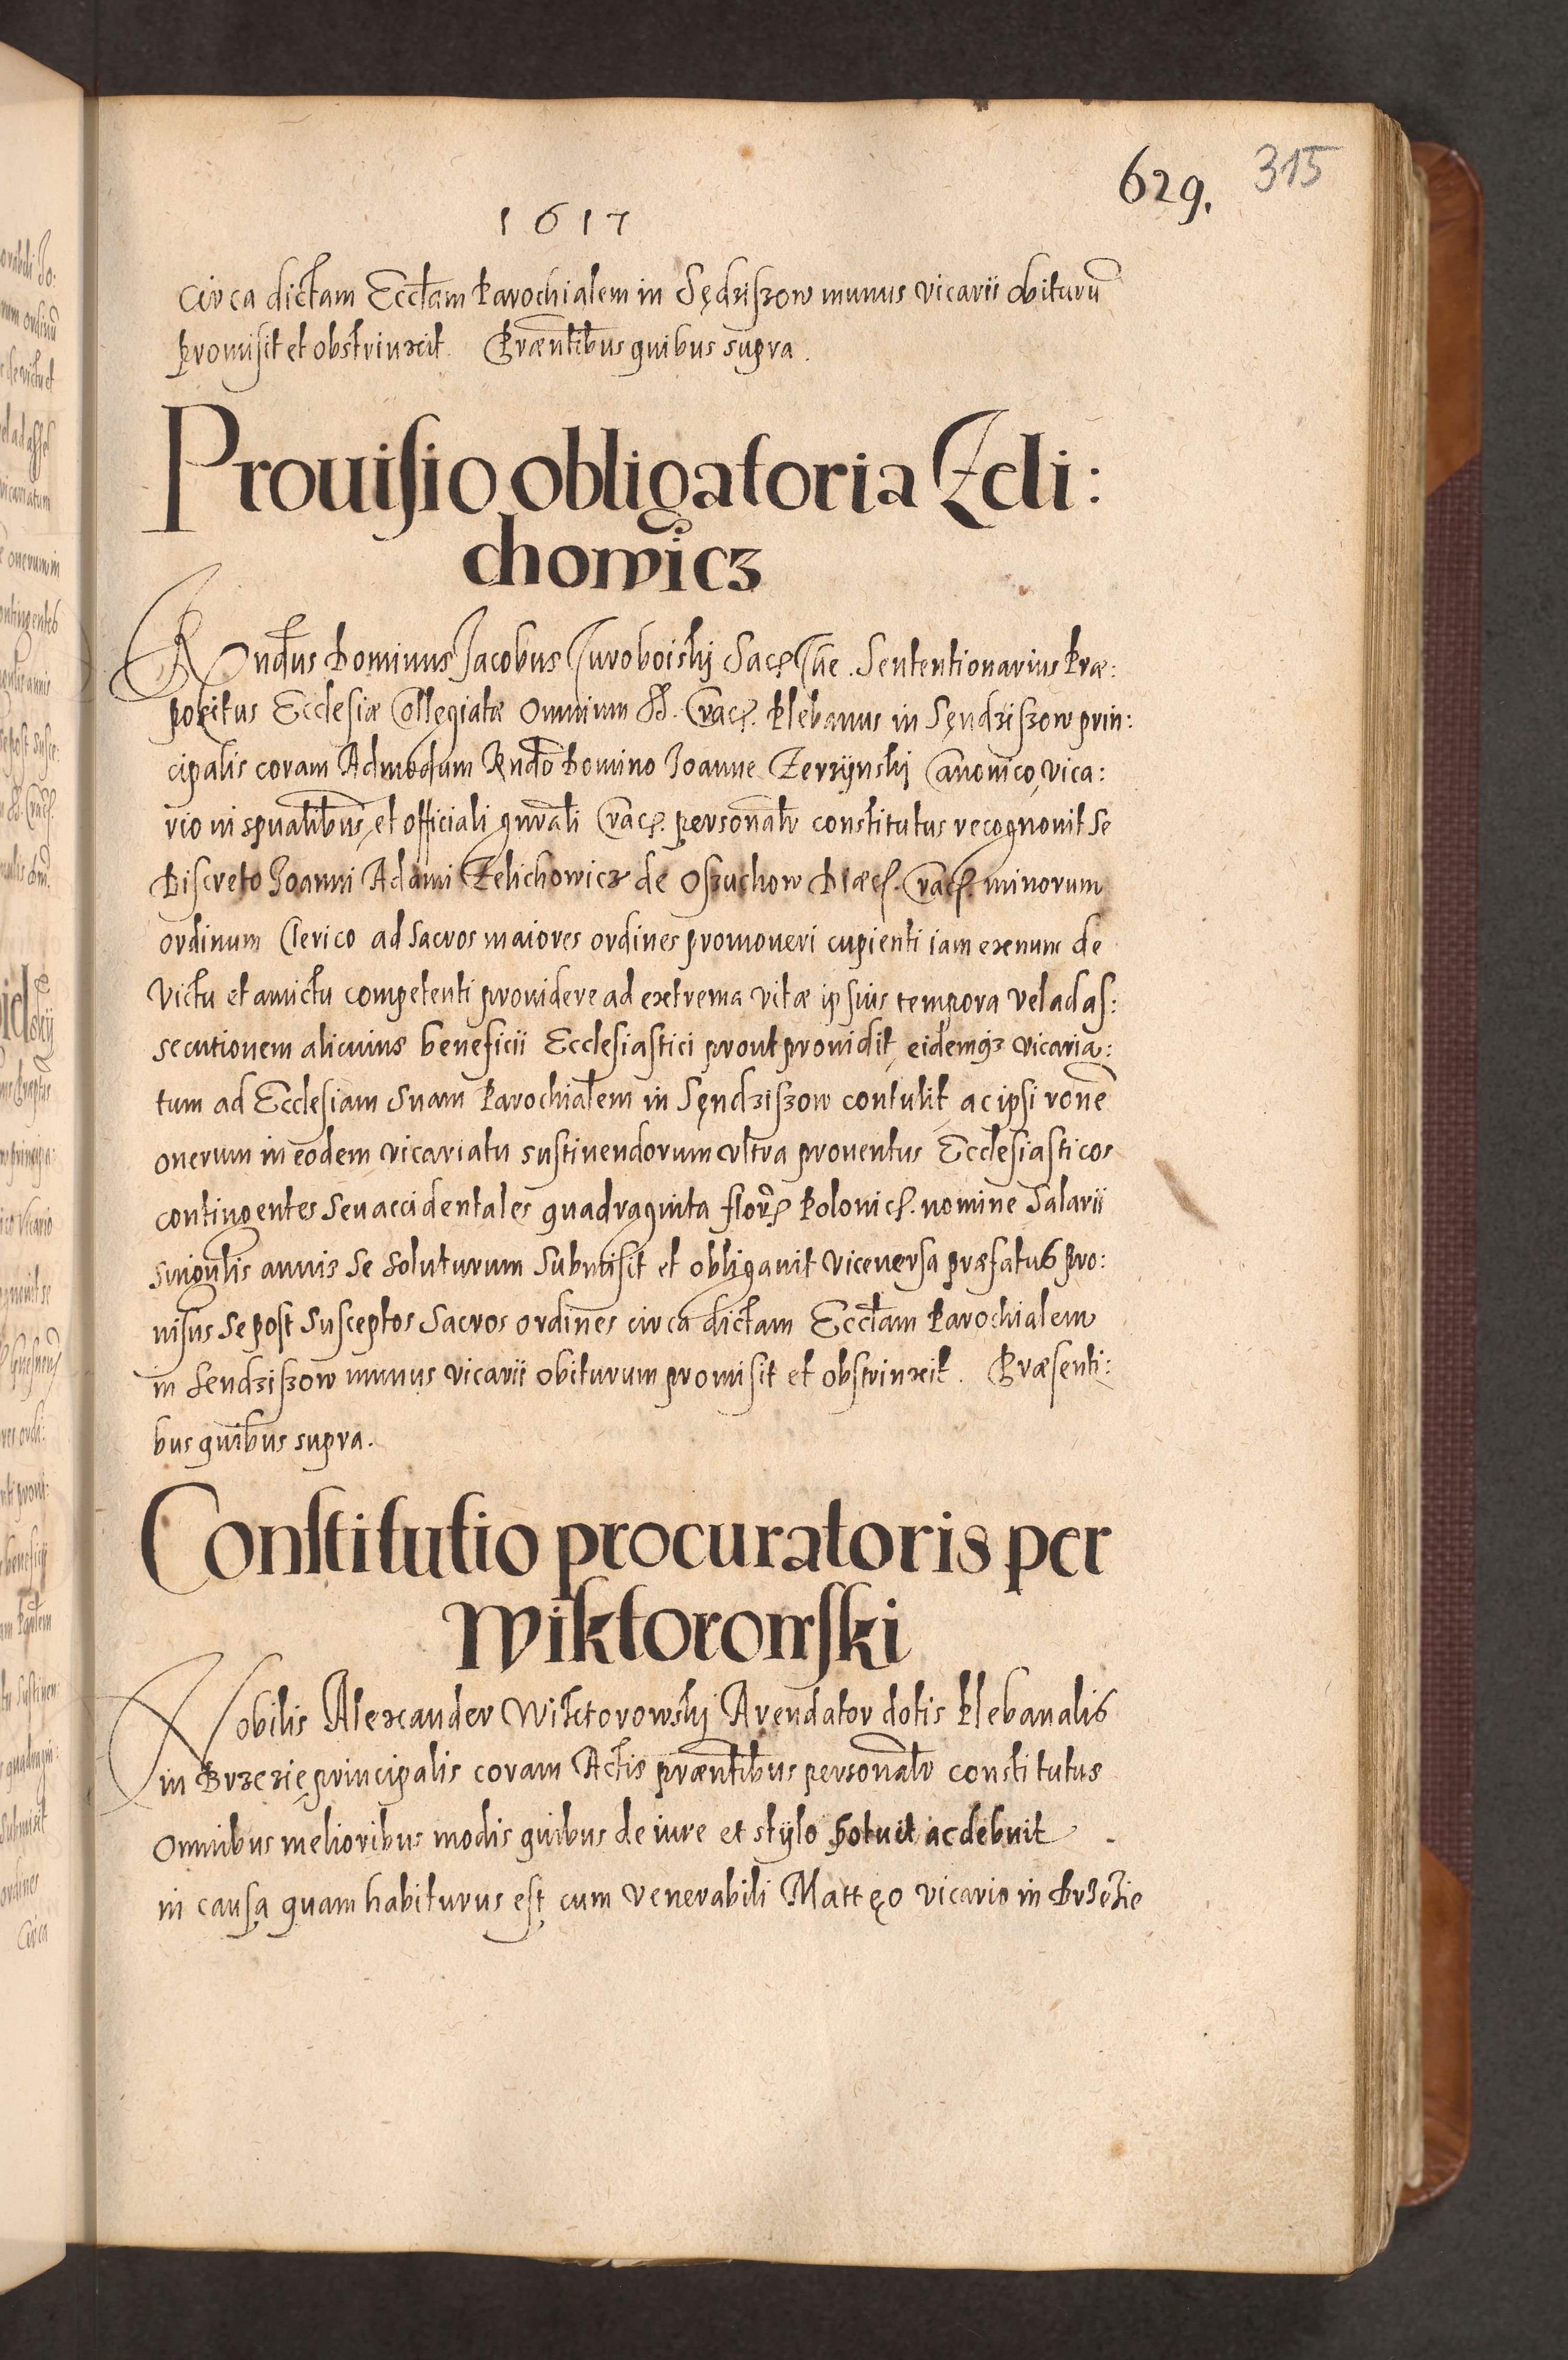 629. 315
1617
Circa dictam Eccl̃am Parochialem in Sędziszow munus vicarii obiturũ
promisit et obstrinxit. Præntibus quibus supra.
Prouisio obligatoria Zeli:
chowicz
Rndus Dominus Jacobus Juroboiski Sac. Sententionarius Præ:
positus Ecclesiæ Collegiatæ Omnium SS. Crac. Plebanus in Sęndziszow prin:
cipalis coram Admodum Rndo Domino Joanne Zerzynski Canonico, vica:
rio in spualibus et officiali gnrali Crac. personalr constitutus recognouit se
Discreto Joanni Adami Zelichowicz de Oszuchow Diæc. Crac. minorum
ordinum Clerico ad Sacros maiores ordines promoueri cupienti iam ex nunc de
victu et amictu competenti prouidere ad extrema vitæ ipsius tempora vel ad as:
secutionem alicuius beneficii Ecclesiastici prout prouidit, eidemq3 vicaria:
tum ad Ecclesiam suam Parochialem in Sęndziszow contulit, ac ipsi ronẽ
onerum in eodem vicariatu sustinendorum vltra prouentus Ecclesiasticos
contingentes seu accidentales quadraginta flor. Polonic. nomine Salarii
singulis annis se soluturum submisit et obligauit vice versa præfatus pro:
uisus se post susceptos Sacros ordines circa dictam Eccl̃am Parochialem
in Sendziszow munus vicarii obiturum promisit et obstrinxit. Præsenti:
bus quibus supra.
Constitutio procuratoris per
Wiktorowski
Nobilis Alexander Wiktorowski Arendator dotis Plebanalis
in Brzezie principalis coram Actis præntibus personalr constitutus
Omnibus melioribus modis quibus de iure et stylo potuit ac debuit
in causa quam habiturus est cum Venerabili Mattęo vicario in Brzezie